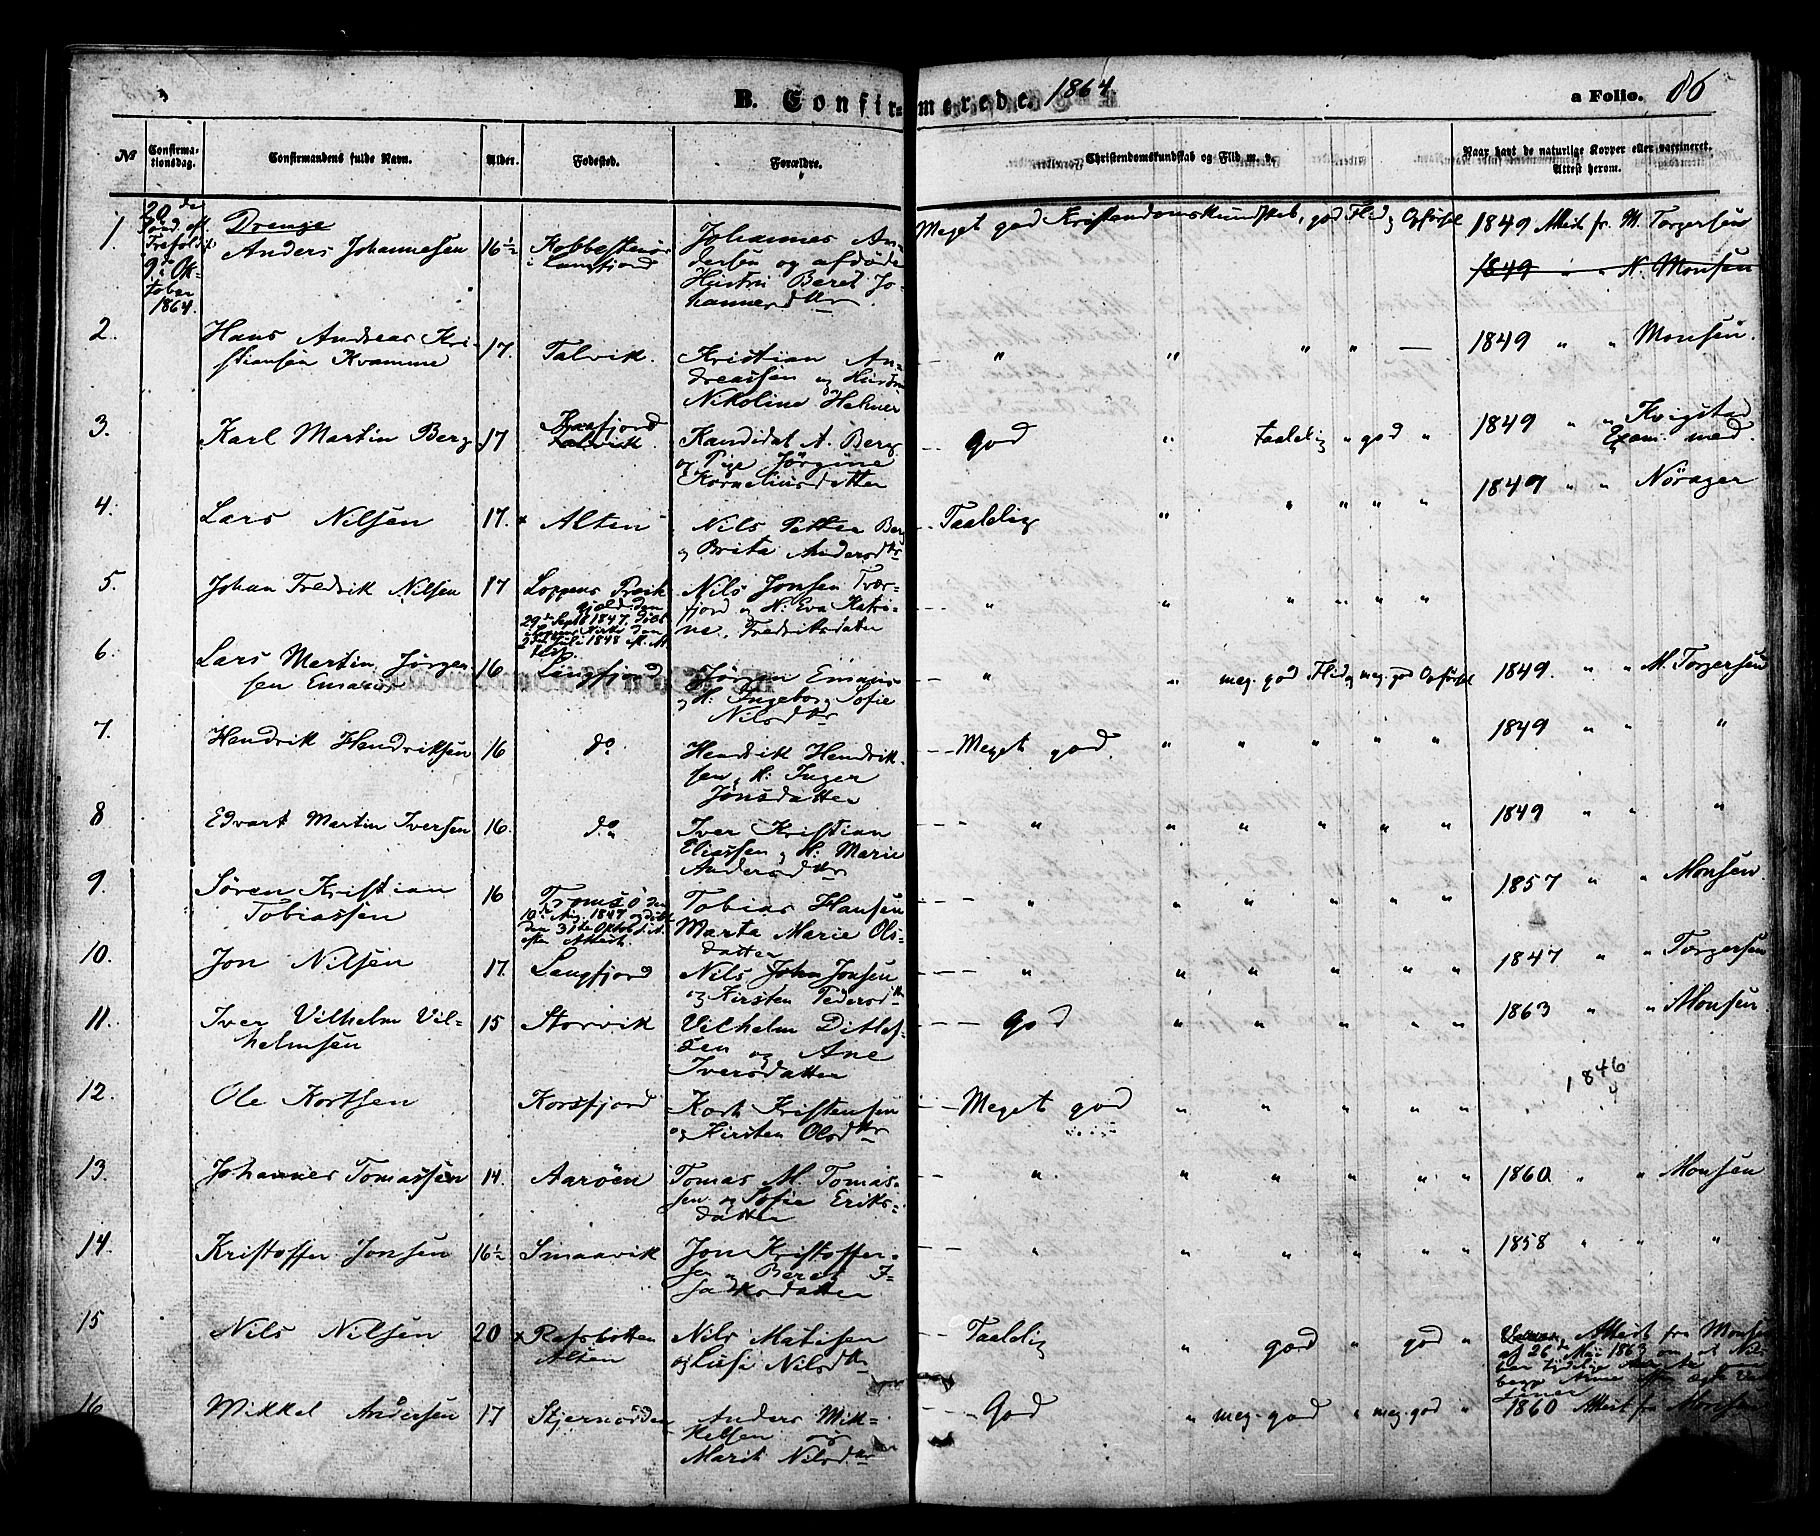 B. Confirmerede. 1864 a Folio. 86
No Confirmationsdag. Confirmandens fulde Navn. Alder. Fødested. Forældre. Christendomskundskab og Flid m. v. Naar havt de naturlige Kopper eller vaccineret. Attest herom.
20de Sønd. eft. Trefoldigh. 9de Oktober 1864.
Drenge
1. Anders Johannesen 16½ Kobbestenør i Langfjord Johannes Andersen og afdøde Hustru Beret Johannesdtr Meget god Kristendomskundskab, god Flid og Opførsel 1849 Attest fr. M. Torgersen
1849 " " N. Monsen
2. Hans Andreas Kristiansen Kvamme 17. Talvik. Kristian Andreassen og Hustru Nikoline Helmer — " " " " — 1849 " " Monsen.
3. Karl Martin Berg 17 Talvik Kandidat A. Berg og Pige Jørgine Korneliusdatter — God " taalelig " god " 1849 " " Kvigstad Exam. med.
4. Lars Nilsen 17. Alten Nils Petter Berg og Brita Andersdtr — Taalelig " " " " " 1847 " " Nørager
5. Johan Fredrik Nilsen 17 Loppens Præstegjeld den 29de Septb 1847, døbt i Loppens Kirke den 2den Juli 1848 Nils Jonsen Tværfjord og H. Eva Katrine Fredriksdatter — " " " " " "
6. Lars Martin Jørgensen Emaus 16 Langfjord Jørgen Emaus og H. Ingeborg Sofie Nilsdtr " " meg. god Flid og meg. god Opførsel 1849. " " M. Torgersen
7. Hendrik Hendriksen 16 do. Hendrik Hendriksen, H. Inger Jonsdatter — Meget god " " " " " 1849 " " "
8 Edvart Martin Iversen 16. do. Iver Kristian Eliassen og H. Marie Andersdtr — — " " " " " " 1849 " " "
9. Søren Kristian Tobiassen 16 Tromsø den 10de Aug. 1847 og døbt den 31de Oktob. s.A. efter Attest. Tobias Hansen Marta Marie Olsdatter — — " " " " " " 1857 " " Monsen.
10. Jon Nilsen 17. Langfjord Nils John Jonsen og Kirsten Pedersdtr — — " " " " " " 1847 " " Torgersen
11. Iver Vilhelm Vilhelmsen 15 Storvik Vilhelm Ditlefsen og Ane Iversdatter — — God " " " " " 1863 " " Monsen.
12. Ole Kortsen Korsfjord Kort Kristensen og Kirsten Olsdtr — Meget god " " " " " 1846 "
13. Johannes Tomassen 14. Aarøen Tomas M. Tomassen og Sofie Eriksdatter — — " " " " " " 1860 " " Monsen
14. Kristoffer Jonsen 16½ Smaavik Jon Kristoffersen og Beret Isaksdatter — — " " " " " " 1858 " " "
15 Nils Nilsen 20 Refsbotten Alten Nils Matisen og Lusi Nilsdtr — Taalelig " god " god " Attest fra Monsen af 26de Mai 1863 om at Nils har tydelige
16 Mikkel Andersen 17 Stjernørden Anders Mikkelsen og Marit Nilsdtr — God " meg. god " meg. god " 1860 Attest fr. Monsen